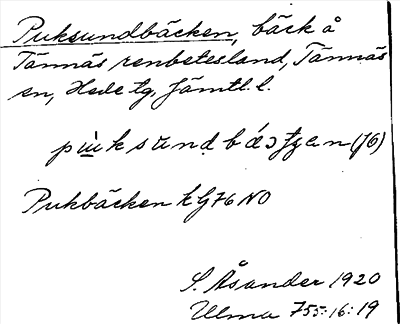 Puksundbäcken, bäck å
Tännäs renbetesland, Tännäs
sn, Hede tg, Jämtl. l.
Pukbäcken k G76 NO
S. Åsander 1920
Ulma 755:16:19